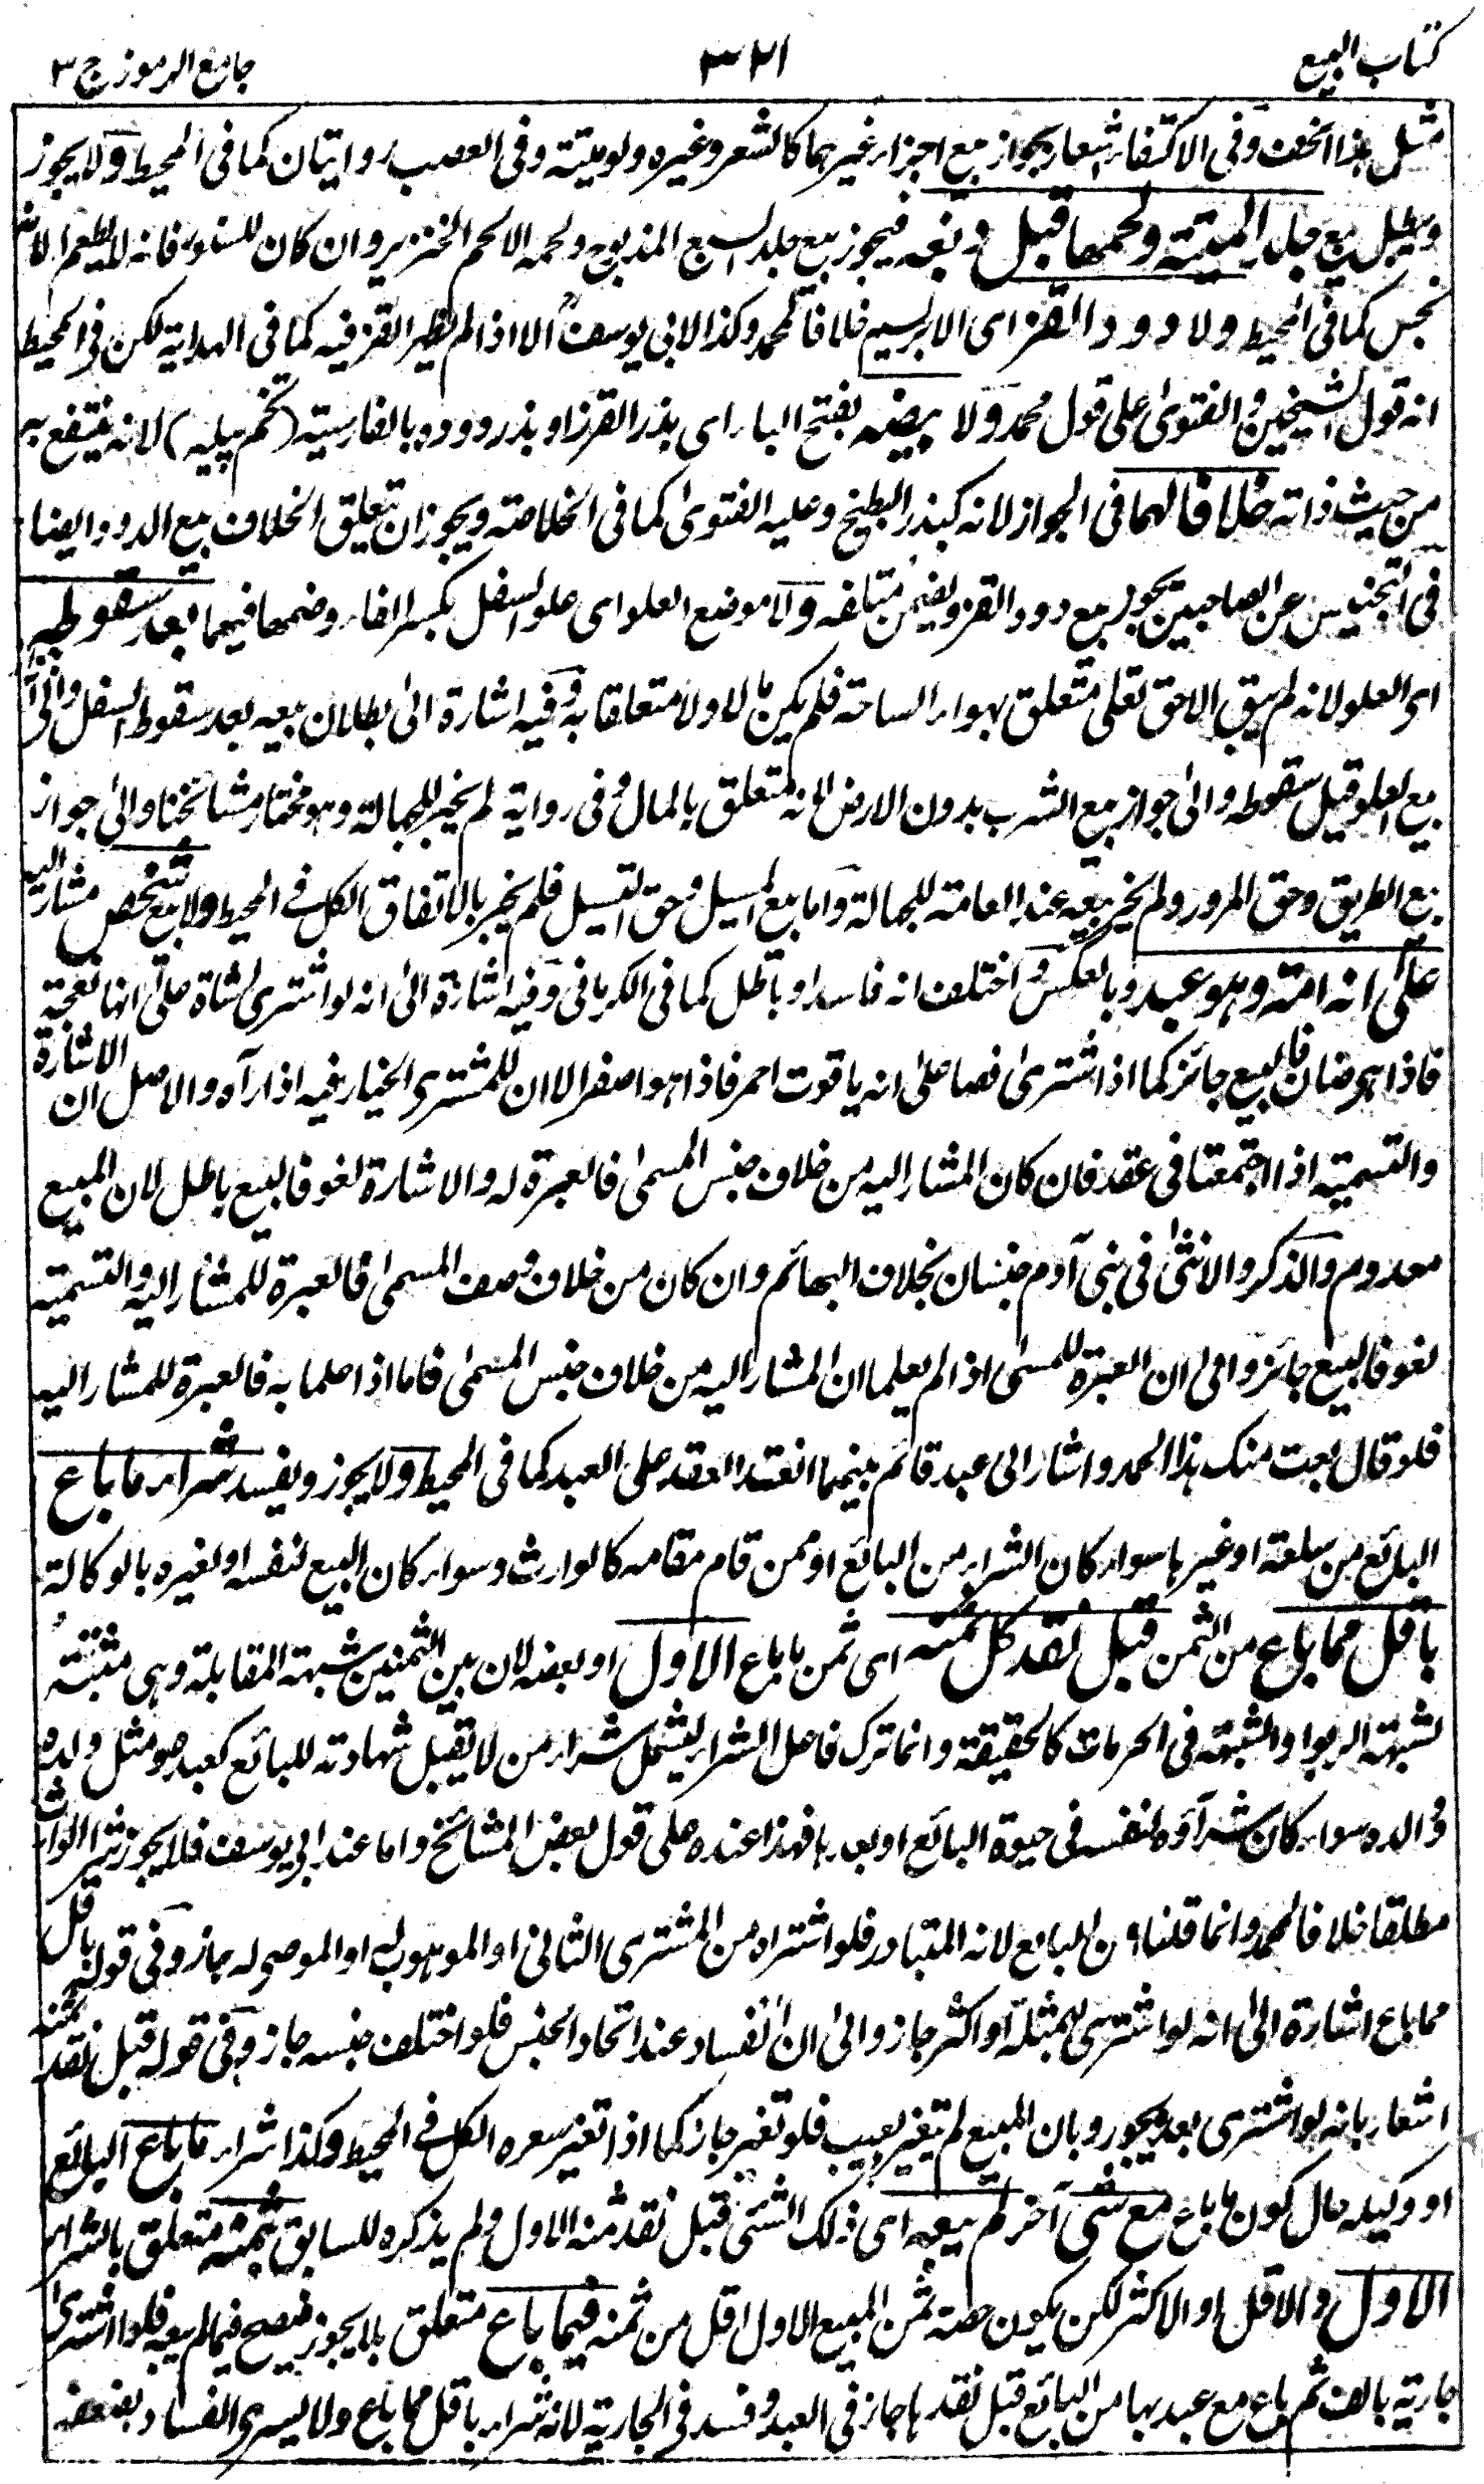 كتاب البيع
٣٢١
جامع الرموز ج ٣
مثل هذا الخف وفى الاكتفاء اشعار بجواز بيع اجزاء غيرهما كالشعر وغيره ولو ميتة وفى العصب روايتان كما فى المحيط ولا يجوز
ويبطل بيع جلد الميتة ولحمها قبل دبغه فيجوز بيع جلد السبع المذبوح ولحمه الا لحم الخنزير وان كان للسنور فانه لا يطعم الا انه
نجس كما فى المحيط ولا دود القز اى الابريسم خلافا لمحمد وكذا لابى يوسف الا اذا لم يظهر القز فيه كما فى الهداية لكن فى المحيط
انه قول الشيخين والفتوى على قول محمد ولا بيضه بفتح الباء اى بذر القز او بذر دوده وبالفارسية (تخم پيله) لانه ينتفع به
من حيث ذاته خلافا لهما فى الجواز لانه كبذر البطيخ وعليه الفتوى كما فى الخلاصة ويجوز ان يتعلق الخلاف ببيع الدود ايضا
فى التجنيس عن الصاحبين يجوز بيع دود القز ويضمن متلفه ولا موضع العلو اى علو السفل بكسر الفاء وضمها فيهما بعد سقوطه
اى العلو لانه لم يبق الا حق تعلى متعلق بهواء الساحة فلم يكن مالا ولا متعلقا به وفيه اشارة الى بطلان بيعه بعد سقوط السفل والى
بيع العلو قبل سقوطه والى جواز بيع الشرب بدون الارض لانه متعلق بالمال وفى رواية لم يجز للجهالة وهو مختار مشائخنا والى جواز
بيع الطريق وحق المرور ولم يجز بيعه عند العامة للجهالة واما بيع المسيل وحق التسييل فلم يجز بالاتفاق الكل فى المحيط ولا بيع شخص مشار اليه
على انه امة وهو عبد وبالعكس واختلف انه فاسد او باطل كما فى الكرمانى وفيه اشارة الى انه لو اشترى شاة على انها نعجة
فاذا هو ضان فالبيع جائز كما اذا اشترى فصا على انه ياقوت احمر فاذا هو اصفر الا ان للمشترى الخيار فيه اذا رآه والاصل ان الاشارة
والتسمية اذا اجتمعتا فى عقد فان كان المشار اليه من خلاف جنس المسمى فالعبرة له والاشارة لغو فالبيع باطل لان المبيع
معدوم والذكر والانثى فى بنى آدم جنسان بخلاف البهائم وان كان من خلاف وصف المسمى فالعبرة للمشار اليه والتسمية
لغو فالبيع جائز والى ان العبرة للمسمى اذا لم يعلما ان المشار اليه من خلاف جنس المسمى فاما اذا علما به فالعبرة للمشار اليه
فلو قال بعت منك هذا الحمد واشار الى عبد قائم بينهما انعقد العقد على العبد كما فى المحيط ولا يجوز ويفسد شراء ما باع
البائع من سلعة او غيرها سواء كان الشراء من البائع او ممن قام مقامه كالوارث وسواء كان البيع لنفسه او لغيره بالوكالة
باقل مما باع من الثمن قبل نقد كل ثمنه اى ثمن ما باع الاول او بعضه لان بين الثمنين شبهة المقابلة وهى مثبتة
لشبهة الربوا والشبهة فى الحرمات كالحقيقة وانما ترك فاعل الشراء ليشمل شراء من لا تقبل شهادته للبائع كعبده ومثل ولده
ووالده سواء كان شراؤه لنفسه فى حيوة البائع او بعدها فهذا عنده على قول بعض المشائخ واما عند ابى يوسف فلا يجوز شراء الوارث
مطلقا خلافا لمحمد وانما قلنا من البايع لانه المتبادر فلو اشتراه من المشترى الثانى او الموهوب له او الموصى له جاز وفى قوله باقل
مما باع اشارة الى انه لو اشترى بمثله او اكثر جاز والى ان الفساد عند اتحاد الجنس فلو اختلف جنسه جاز وفى قوله قبل نقد ثمنه
اشعار بانه لو اشترى بعده يجوز وبان المبيع لم يتغير بعيب فلو تغير جاز كما اذا تغير سعره الكل فى المحيط وكذا شراء ما باع البائع
او وكيله حال كون ما باع مع شئ آخر لم يبعه اى ذلك الشئ قبل نقد ثمنه الاول ولم يذكره للسابق بثمنه متعلق بالشراء
الاول والاقل او الاكثر لكن يكون حصة ثمن المبيع الاول اقل من ثمنه فيما باع متعلق بلا يجوز فيصح فيما لم يبعه فلو اشترى
جارية بالف ثم باع مع عبد بها من البائع قبل نقدها جاز فى العبد وفسد فى الجارية لانه شراء باقل مما باع ولا يسرى الفساد